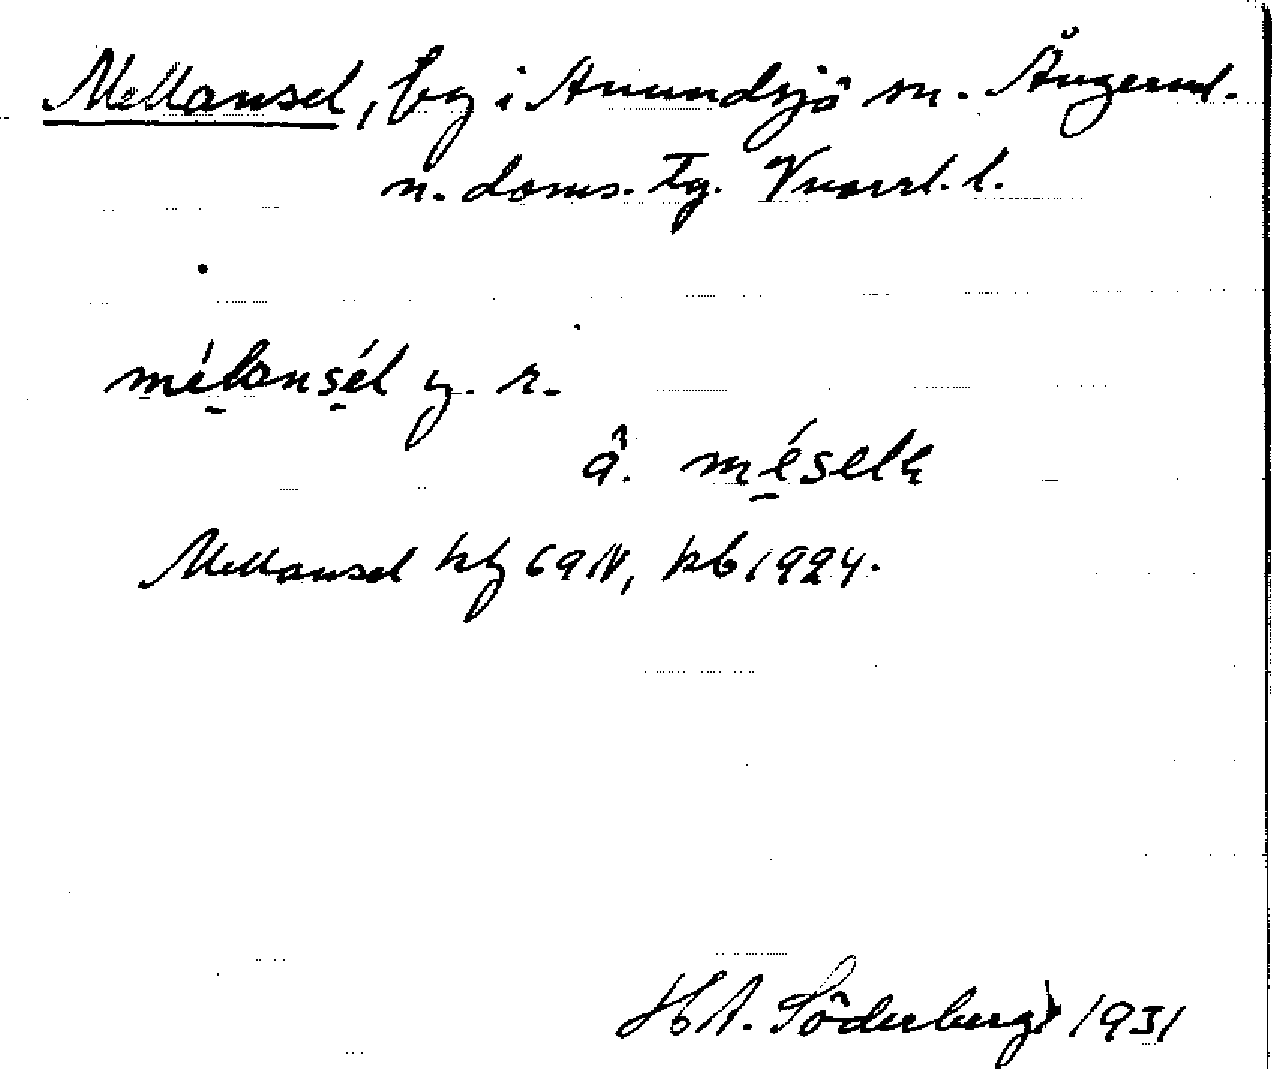 Mellansel, by i Anundsjö sn. Ångerml.
n. doms. tg. Vnorrl. l.
mélansél y. r.
â. méselą
Mellansel hfl 69 IV, kb 1924.
H A. Söderberg 1931